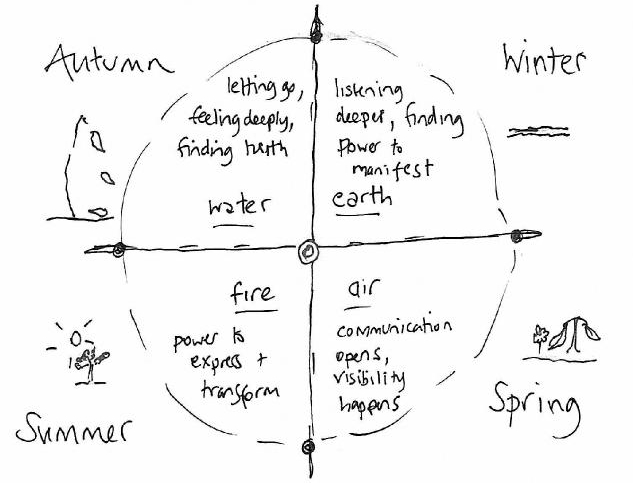 Autumn
Winter
letting go,
feeling deeply,
finding truth
water
listening
deeper, finding
power to
manifest
earth
fire
power to
express +
transform
air
communication
opens,
visibility
happens
Summer
Spring